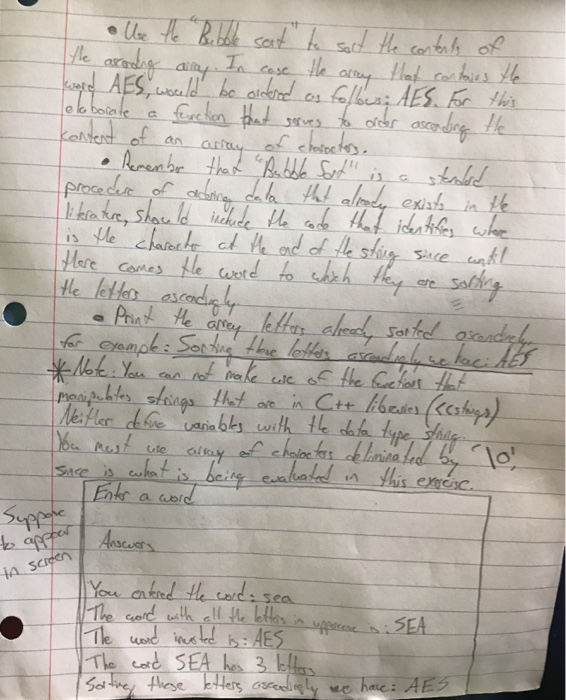 • Use the "Bubble sort" to sort the contents of
the ascending array. In case the array that contains the
word AES, would be ordered as follows: AES. For this
elaborate a function that serves to order ascending the
content of an array of characters.
• Remember that "Bubble Sort" is a standard
procedure of ordering data that already exists in the
literature, should include the code that identifies where
is the character at the end of the string since until
there comes the word to which they are sorting
the letters ascendingly.
• Print the array letters already sorted ascendingly
for example: Sorting these letters ascendingly we have: AES
* Note: You can not make use of the functions that
manipulates strings that are in C++ libraries (<cstrings>)
Neither define variables with the data type string.
You must use array of characters deliminated by '\0',
since is what is being evaluated in this exercise.
Suppose
to appear
in screen
Enter a word
Answers
You entered the word: sea
The word with all the letters in uppercase is: SEA
The word inverted is: AES
The word SEA has 3 letters
Sorting these letters ascendingly we have: AES